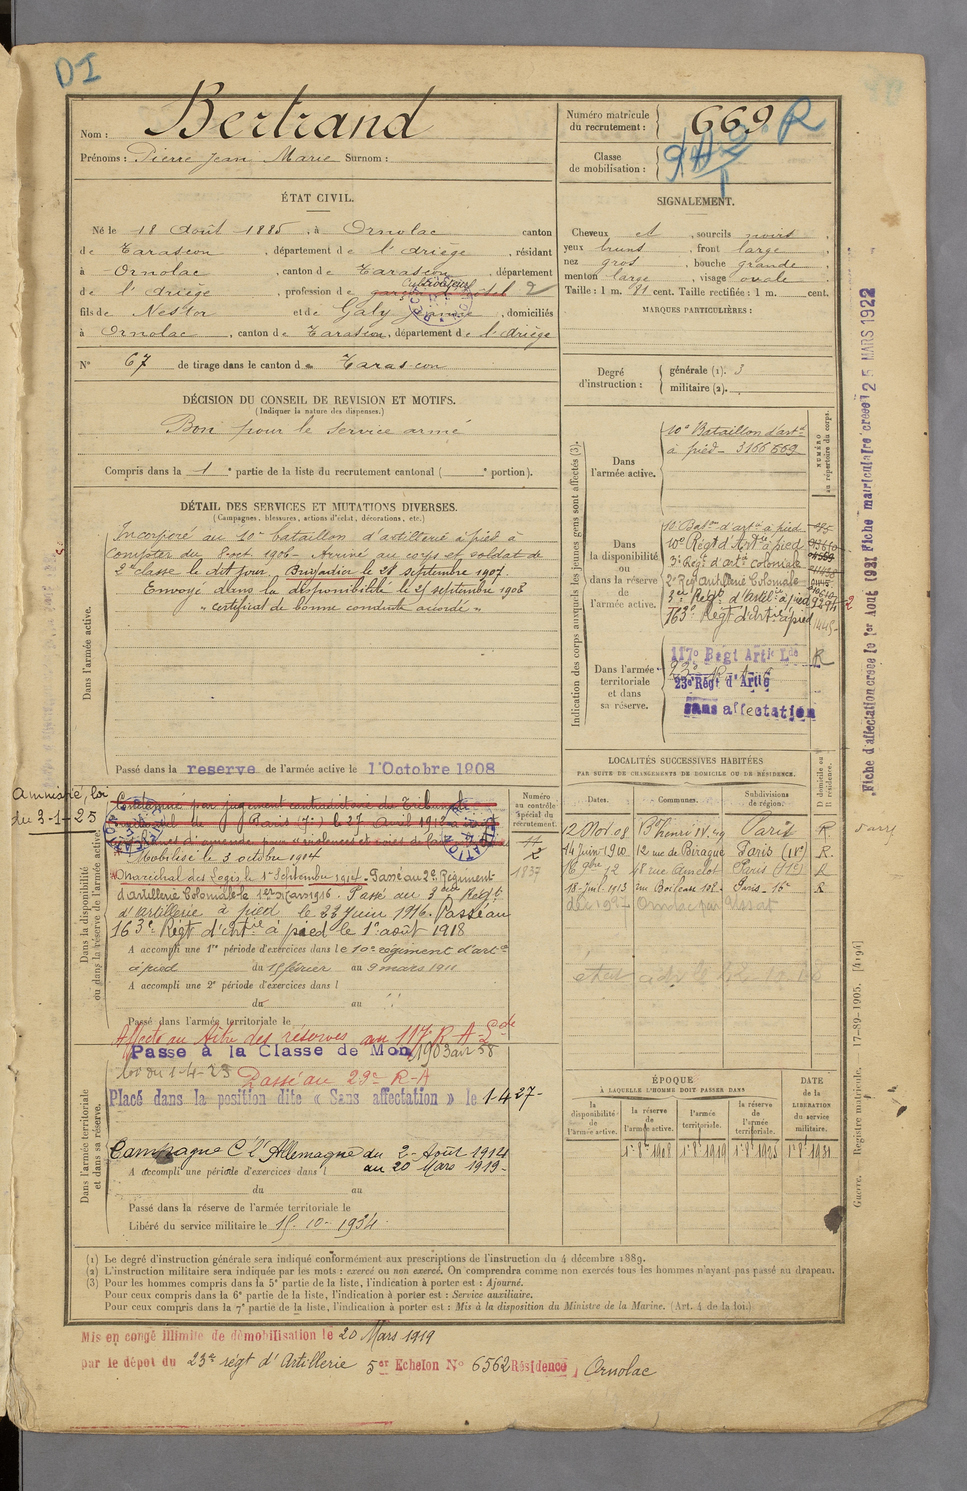 DI
Nom : Bertrand
Prénoms : Pierre Jean Marie Surnom :
Numéro matricule du recrutement : 669 R
Classe de mobilisation :
ÉTAT CIVIL.
Né le 18 Août 1885, à Ornolac canton
de Tarascon, département de l'Ariège, résidant
à Ornolac, canton de Tarascon, département
de l'Ariège, profession de Cultivateur 2
fils de Nestor et de Galy Jeanne, domiciliés
à Ornolac, canton de Tarascon, département de l'Ariège
N° 67 de tirage dans le canton de Tarascon
SIGNALEMENT.
Cheveux et, sourcils noirs,
yeux bruns, front large
nez gros, bouche grande,
menton large, visage ovale
Taille : 1 m. 81 cent. Taille rectifiée : 1 m. cent.
MARQUES PARTICULIÈRES :
Degré d'instruction :
générale (1). 3
militaire (2).
DÉCISION DU CONSEIL DE REVISION ET MOTIFS.
(Indiquer la nature des dispenses.)
Bon pour le service armé
Compris dans la 1e partie de la liste du recrutement cantonal ( e portion).
DÉTAIL DES SERVICES ET MUTATIONS DIVERSES.
(Campagnes, blessures, actions d'éclat, décorations, etc.)
Dans l'armée active.
Incorporé au 10e bataillon d'artillerie à pied à
compter du 8 oct 1906 - Arrivé au corps et soldat de
2e classe le dit jour. Brigadier le 28 septembre 1907.
Envoyé dans la disponibilité le 25 septembre 1908
"certificat de bonne conduite accordé"
Passé dans la reserve de l'armée active le 1 Octobre 1908
Indication des corps auxquels les jeunes gens sont affectés (3).
NUMÉRO au répertoire du corps.
Dans l'armée active.
10e Bataillon d'arte
à pied - 3166 669
Dans la disponibilité ou dans la réserve de l'armée active.
10e Baton d'artie à pied
10e Régt d'Artie à pied
3e Régt d'artie coloniale
2e Régt artillerie Coloniale
3er Régt d'artie à pied
163e Régt d'Artie à pied
Dans l'armée territoriale et dans sa réserve.
117e Régt Artie Lde R
23e Régt d'Artie
sans affectation
Fiche d'affectation créée le 1er Août 1921 Fiche matriculaire créée 25 MARS 1922
Amnistié, loi
du 3-1-25
Dans la disponibilité ou dans la réserve de l'armée active.
Numéro au contrôle spécial du recrutement.
1837
Condamné par jugement contradictoire du Tribunal
Mobilisé le 3 octobre 1914
Maréchal des Logis le 1er Septembre 1914 - Passé au 2e Régiment
d'artillerie Coloniale le 1er Mars 1916. Passé au 3ème Régt
d'artillerie à pied le 23 Juin 1916. Passé au
163e Régt d'Artie à pied le 1er août 1918
A accompli une 1re période d'exercices dans le 10e régiment d'artie
à pied du 15 février au 9 mars 1911
A accompli une 2e période d'exercices dans l
du au
Passé dans l'armée territoriale le
Affecté au titre des réserves au 117e R.A.Lde
Dans l'armée territoriale et dans sa réserve.
Passe à la Classe de Mon 1903 art 58
loi du 1-4-23 Passé au 23e R-A
Placé dans la position dite « Sans affectation » le 1-4-27-
Campagne C. l'Allemagne du 2 Août 1914
au 20 Mars 1919-
A accompli une période d'exercices dans l
du au
Passé dans la réserve de l'armée territoriale le
Libéré du service militaire le 15-10-1934
LOCALITÉS SUCCESSIVES HABITÉES
PAR SUITE DE CHANGEMENTS DE DOMICILE OU DE RÉSIDENCE.
Dates. Communes. Subdivisions de région. D domicile ou R résidence.
12 Nov. 08 Bd Henri IV. 49 Paris R
14 Juin 1910 12 rue de Birague Paris (IVe) R.
16 9bre 12 18 rue Amelot Paris (11e) R
18 Juil. 1913 rue Boileau Paris-16e R
Ornolac par Ussat
ÉPOQUE
À LAQUELLE L'HOMME DOIT PASSER DANS
DATE DE LA LIBÉRATION du service militaire.
la disponibilité de l'armée active. la réserve de l'armée active. l'armée territoriale. la réserve de l'armée territoriale.
1er 8e 1908 1er 8e 1919 1er 8e 1925 1er 8e 1931
Guerre. — Registre matricule. 17-89-1905. [4194]
(1) Le degré d'instruction générale sera indiqué conformément aux prescriptions de l'instruction du 4 décembre 1889.
(2) L'instruction militaire sera indiquée par les mots : exercé ou non exercé. On comprendra comme non exercés tous les hommes n'ayant pas passé au drapeau.
(3) Pour les hommes compris dans la 5e partie de la liste, l'indication à porter est : Ajourné.
Pour ceux compris dans la 6e partie de la liste, l'indication à porter est : Service auxiliaire.
Pour ceux compris dans la 7e partie de la liste, l'indication à porter est : Mis à la disposition du Ministre de la Marine. (Art. 4 de la loi.)
Mis en congé illimité de démobilisation le 20 Mars 1919
par le dépôt du 23e régt d'Artillerie 5er Echelon N° 6562 Résidence Ornolac